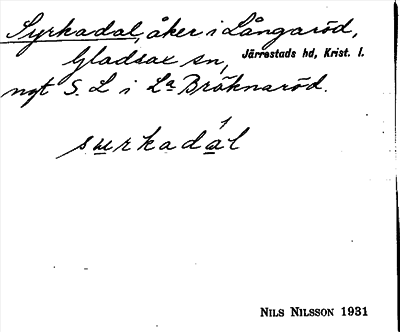 Syrkadal, åker i Långaröd,
Gladsax sn, Järrestads hd, Krist. l.
ngt S. L i La Bröknaröd.
surkadál
NILS NILSSON 1931